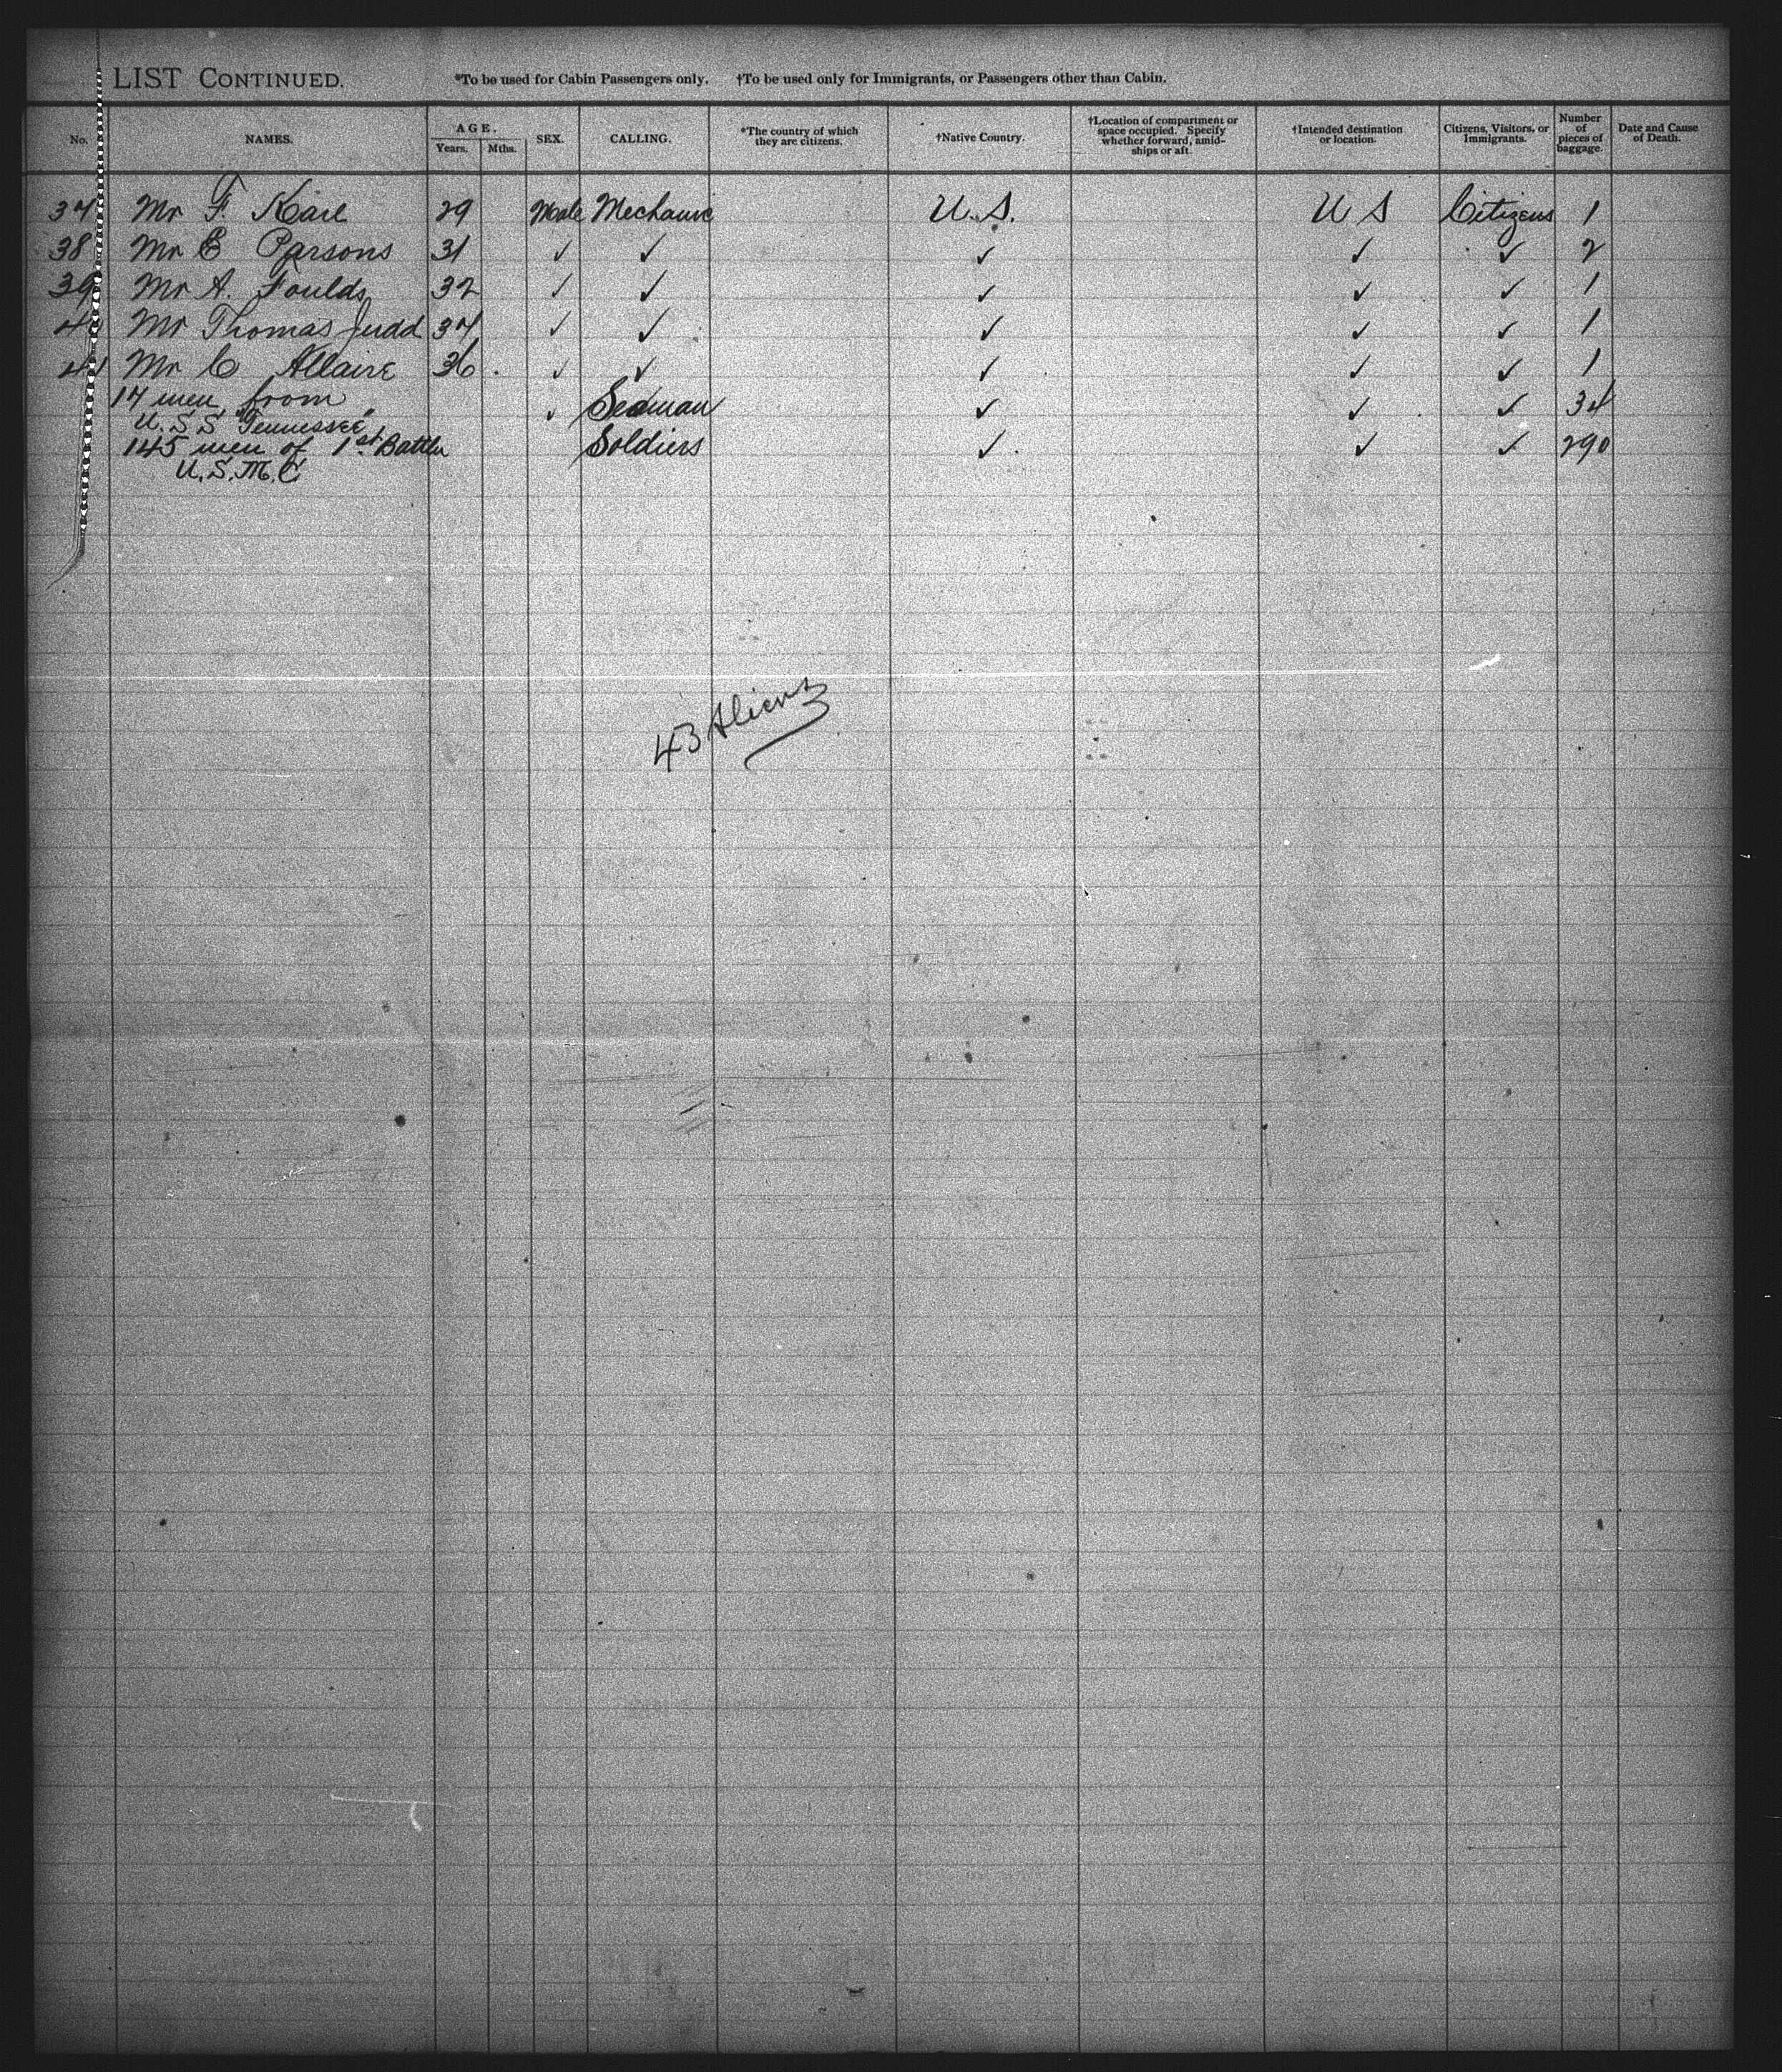 LIST CONTINUED. *To be used for Cabin Passengers only. †To be used only for Immigrants, or Passengers other than Cabin.
No. NAMES. AGE. Years. Mths. SEX. CALLING. *The country of which they are citizens. †Native Country. †Location of compartment or space occupied. Specify whether forward, amidships or aft †Intended destination or location. Citizens, Visitors, or Immigrants. Number of pieces of baggage. Date and Cause of Death.
37 Mr F. Karl 29 Male Mechanic U.S. U S Citizens 1
38 Mr E Parsons 31 ✓ ✓ ✓ ✓ ✓ 2
39 Mr A. Foulds 32 ✓ ✓ ✓ ✓ ✓ 1
40 Mr Thomas Judd 37 ✓ ✓ ✓ ✓ ✓ 1
41 Mr C Allaire 36 ✓ ✓ ✓ ✓ ✓ 1
17 men from ✓ Seaman ✓ ✓ ✓ 34
U.S.S "Tennessee"
145 men of 1st Battln Soldiers ✓ ✓ ✓ 290
U.S.M.C
43 Aliens